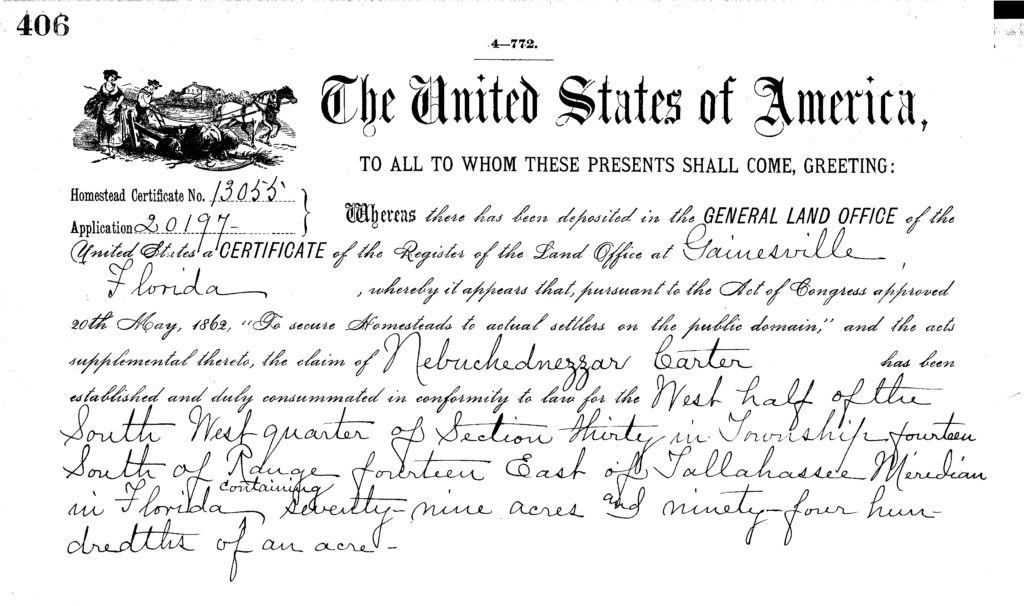 406
4—772.
The United States of America,
TO ALL TO WHOM THESE PRESENTS SHALL COME, GREETING:
Homestead Certificate No. 13055
Application 20197
Whereas there has been deposited in the GENERAL LAND OFFICE of the
United States a CERTIFICATE of the Register of the Land Office at Gainesville,
Florida, whereby it appears that, pursuant to the Act of Congress approved
20th May, 1862, "To secure Homesteads to actual settlers on the public domain," and the acts
supplemental thereto, the claim of Nebuchednezzar Carter has been
established and duly consummated in conformity to law for the West half of the
South West quarter of Section thirty in Township fourteen
South of Range fourteen East of Tallahassee Meridian
in Florida containing seventy-nine acres and ninety-four hun-
dredths of an acre-